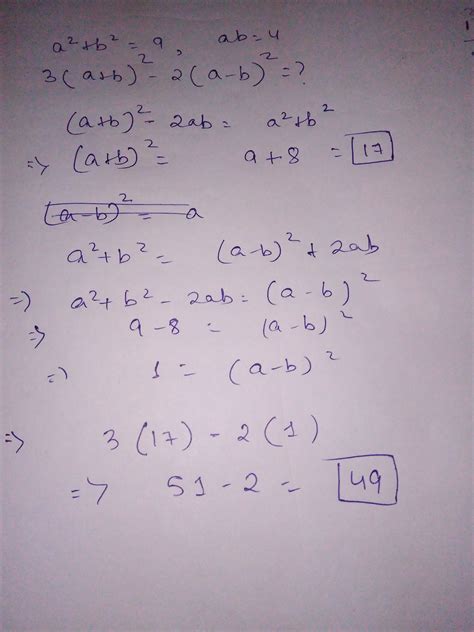 a² + b² = 9 , ab = 4
3(a+b)² - 2(a-b)² = ?
(a+b)² - 2ab = a² + b²
=> (a+b)² = 9 + 8 = 17
(a-b)² = a
a² + b² = (a-b)² + 2ab
=) a² + b² - 2ab = (a-b)²
=> 9 - 8 = (a-b)²
=) 1 = (a-b)²
=> 3(17) - 2(1)
=> 51 - 2 = 49